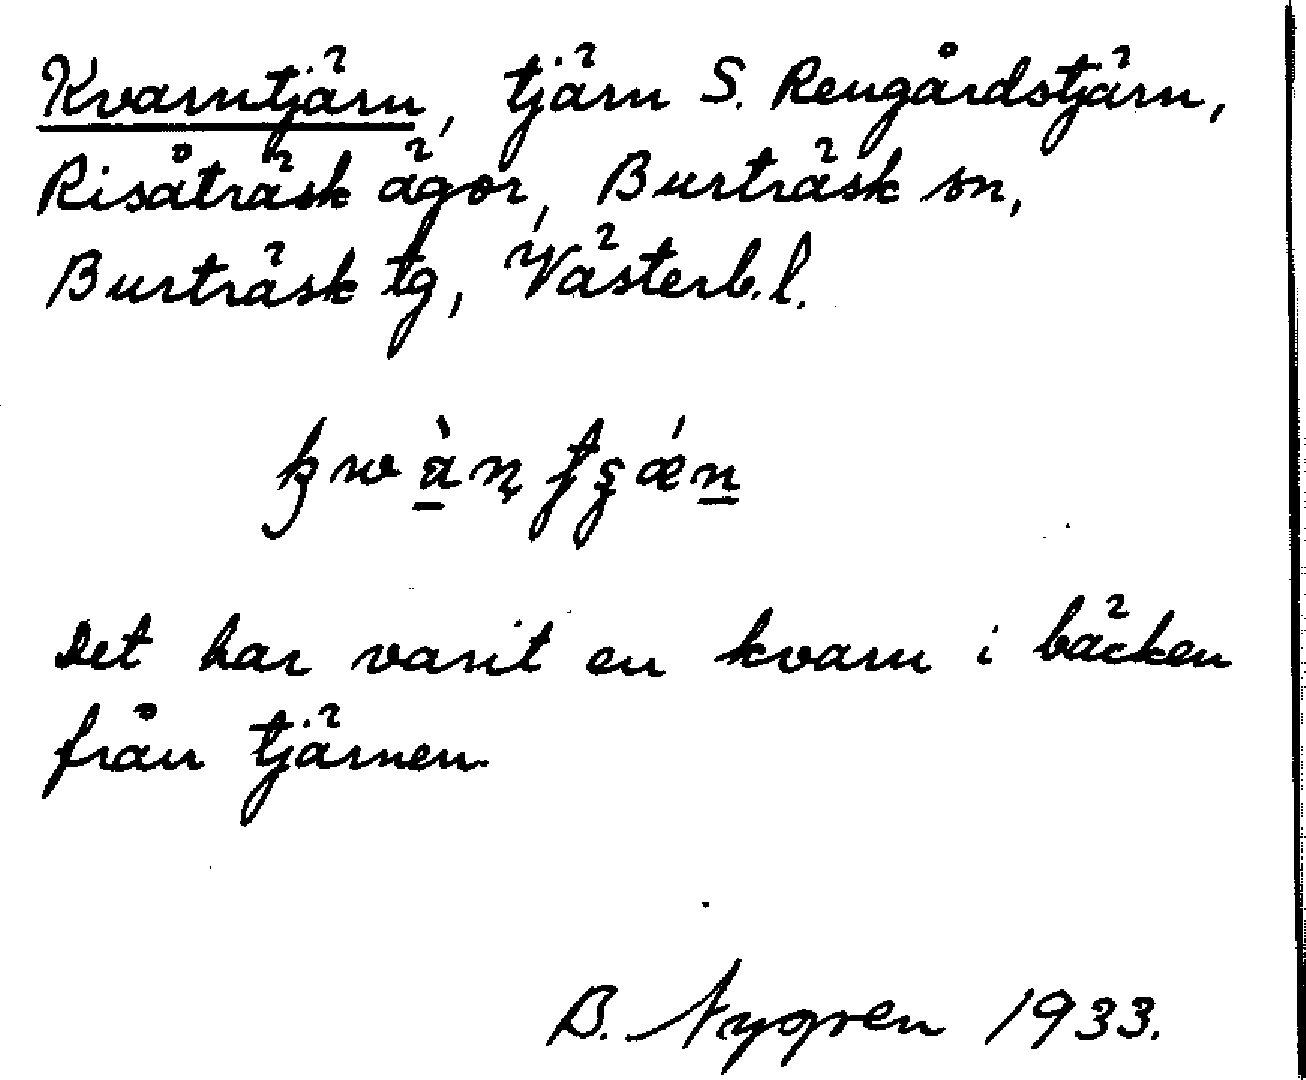 Kvarntjärn, tjärn S. Rengårdstjärn,
Risåträsk ägor, Burträsk sn,
Burträsk tg, Västerb. l.
Det har varit en kvarn i bäcken
från tjärnen.
B. Nygren 1933.